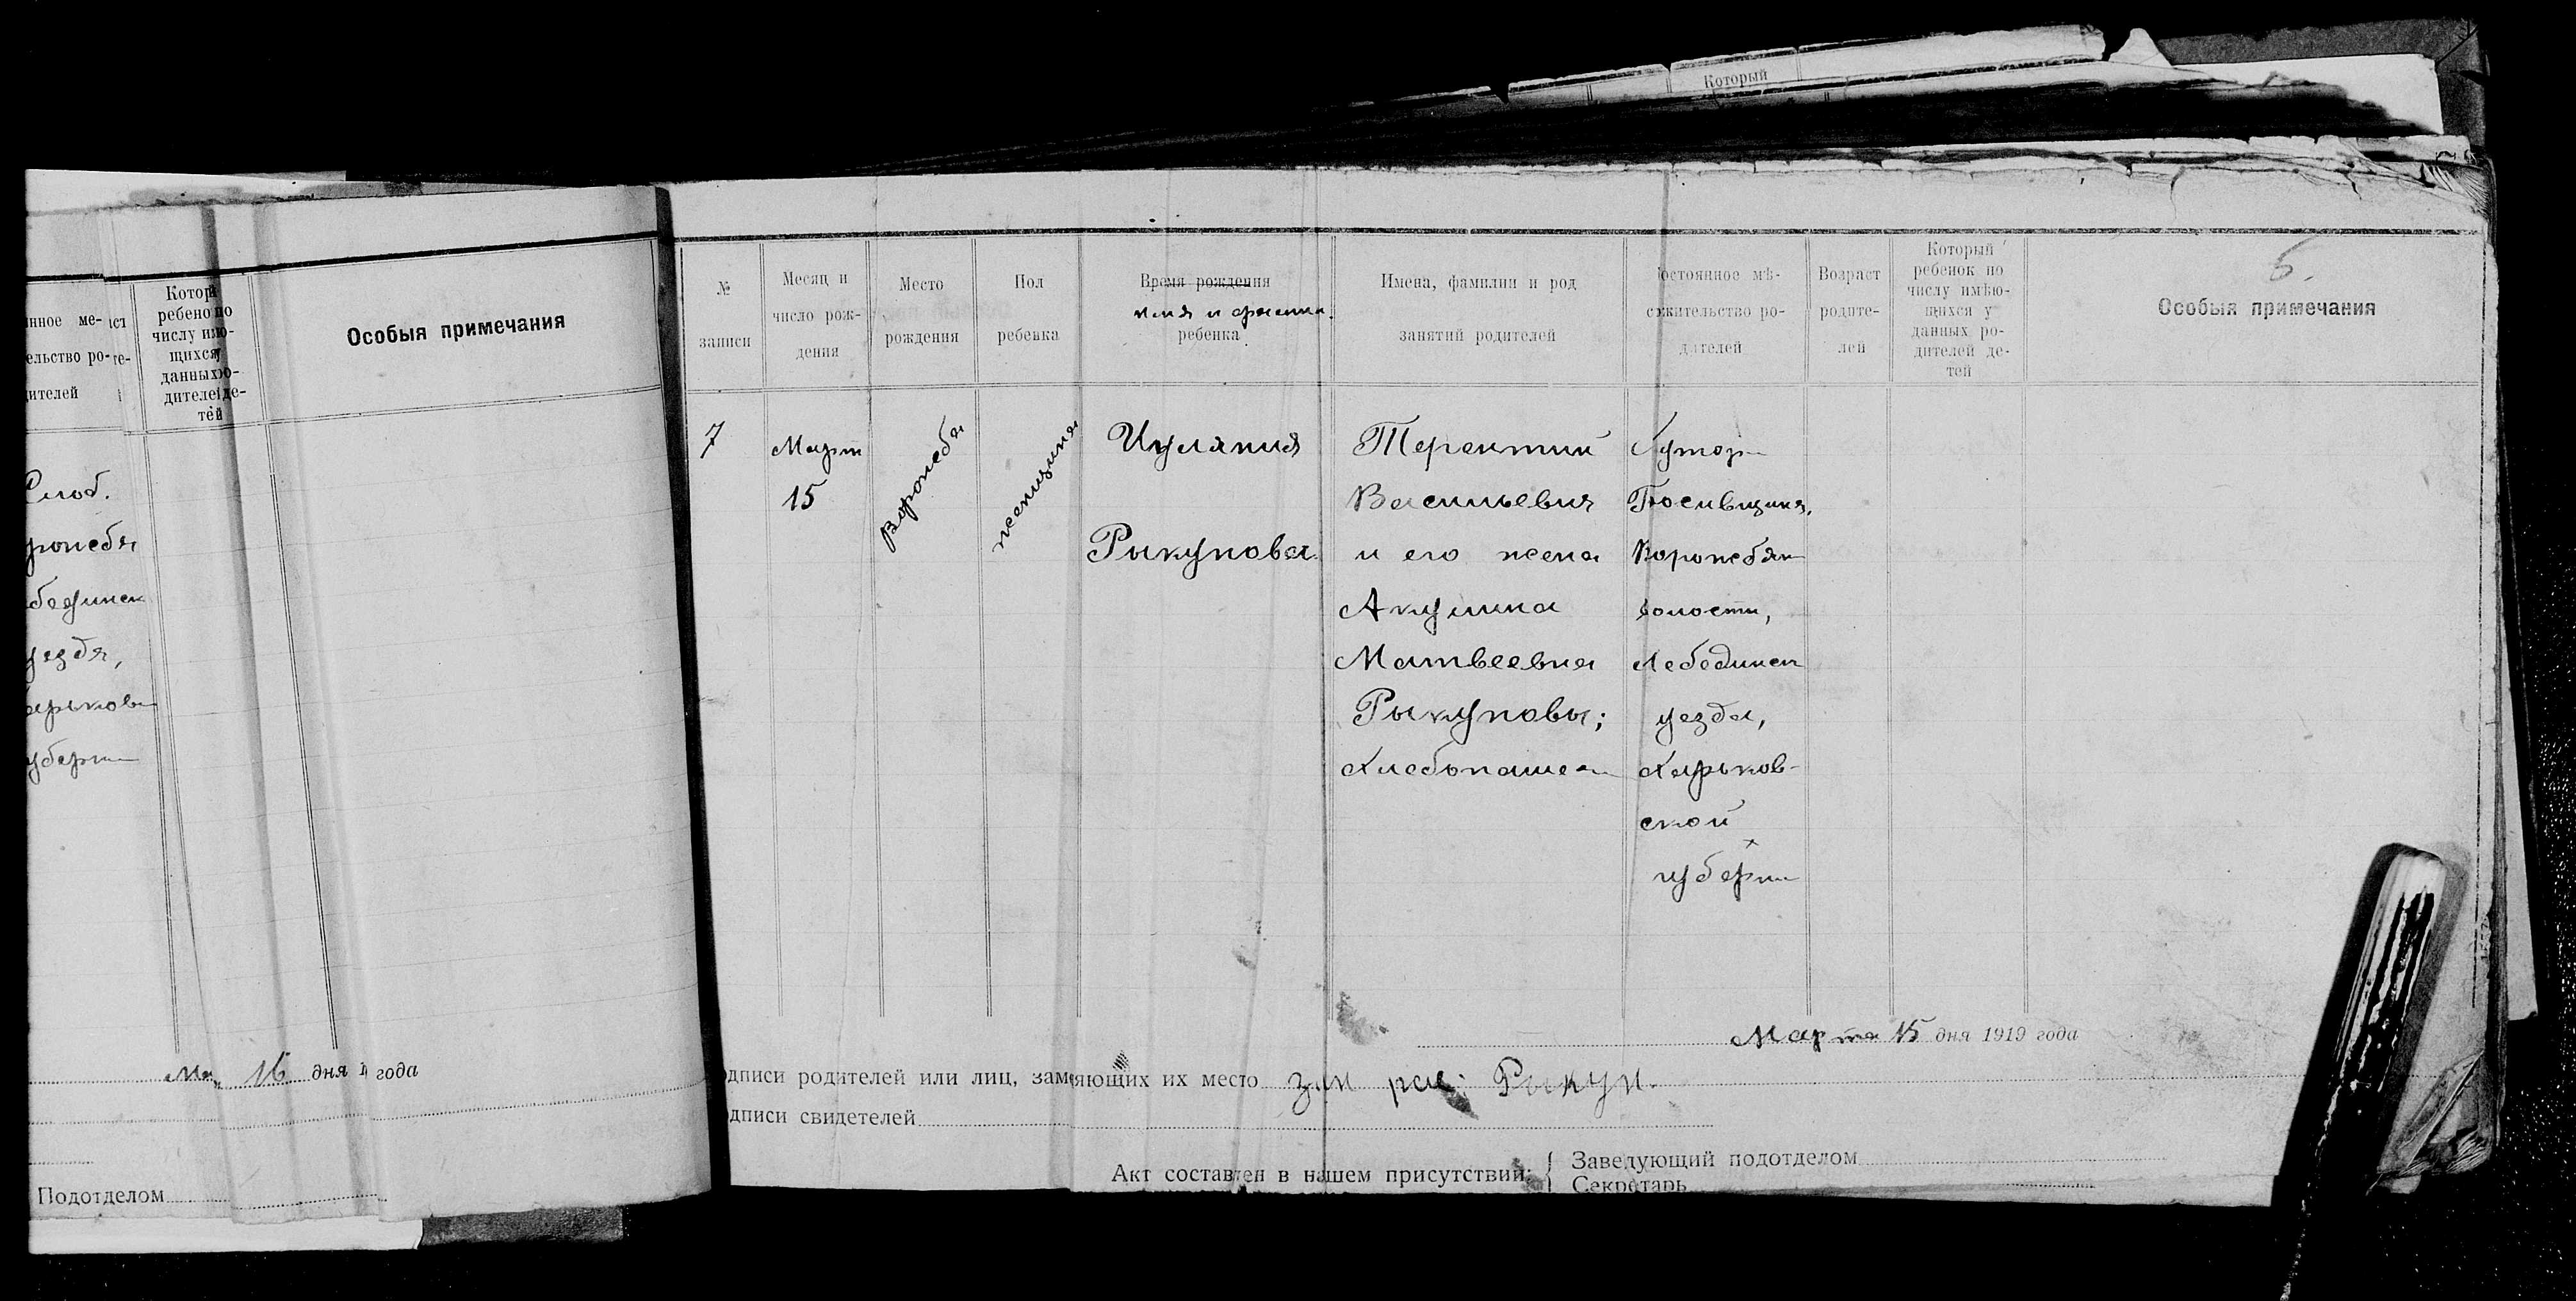 Который
нное ме-
ельство ро-
дителей
Которы
ребенок по
числу имею-
щихся у
данных ро-
дителей де-
тей
Особыя примечания
Слоб.
ронеба
бединск
уезда,
арьков
уберн
16 дня года
Подотделом
№
записи
Месяц и
число рож-
дения
Место
рождения
Пол
ребенка
Время рождения
имя и фамил.
ребенка
Имена, фамилии и род
занятий родителей
остоянное мѣ-
сожительство ро-
дителей
Возраст
родите-
лей
Который
ребенок по
числу имѣю-
щихся у
данных ро-
дителей де-
тей
5.
Особыя примечания
7
Март
15
Ворожба
женщина
Иулания
Рыкунова
Терентий
Васильевич
и его жена
Акулина
Матвеевна
Рыкуновы;
Хлебопашец
Хутор
Ворожбян
волости,
Лебединск
уезда,
Харьков-
ской
губерн
Марта 15 дня 1919 года
одписи родителей или лиц, заменяющих их место Рыкун.
одписи свидетелей
Акт составлен в нашем присутствии:
Заведующий подотделом
Секретарь